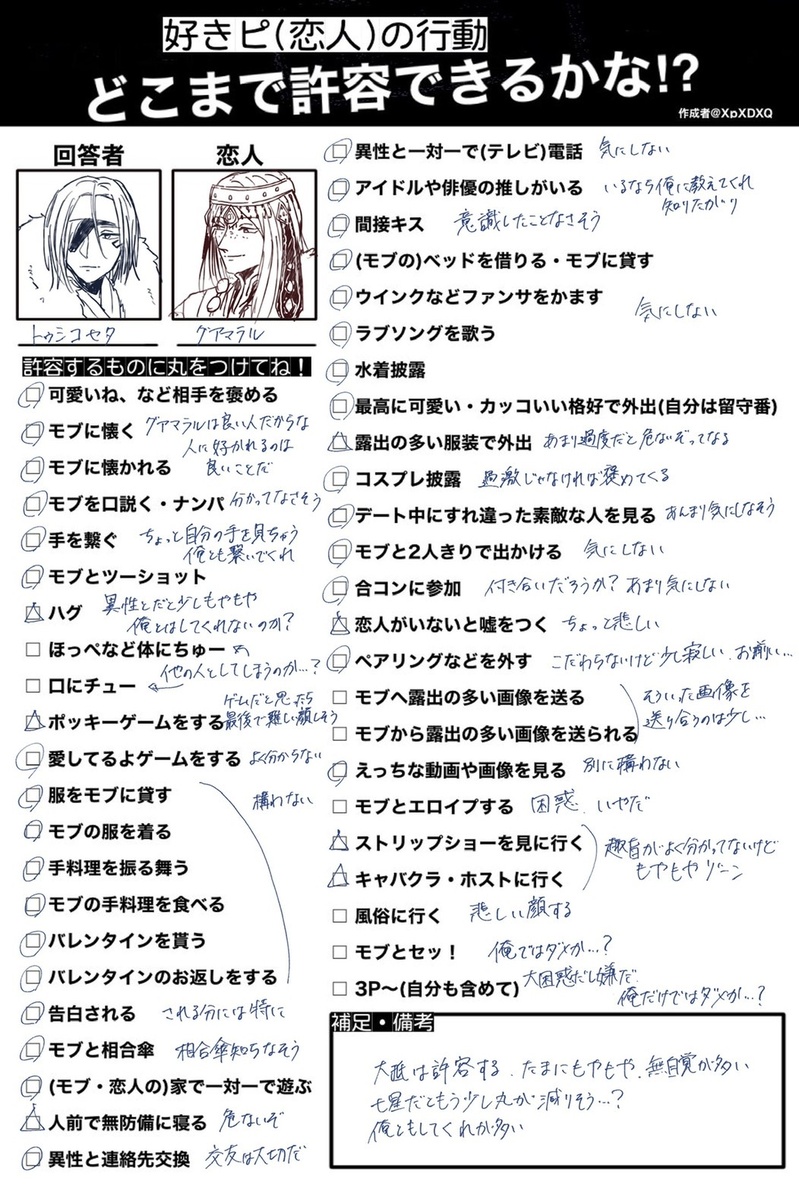 好きピ(恋人)の行動
どこまで許容できるかな!?
作成者@XpXDXQ
回答者
恋人
トゥシコセタ
グアマラル
許容するものに丸をつけてね！
可愛いね、など相手を褒める
モブに懐く グアマラルは良い人だからな
人に好かれるのは
良いことだ
モブに懐かれる
モブを口説く・ナンパ 分かってなさそう
手を繋ぐ ちょっと自分の手を見ちゃう
俺とも繋いでくれ
モブとツーショット
ハグ 異性とだと少しもやもや
俺とはしてくれないのか？
ほっぺなど体にちゅー
他の人としてしまうのか…？
口にチュー
ポッキーゲームをする ゲームだと思ったら
最後で難しい顔しそう
愛してるよゲームをする よく分からない
服をモブに貸す
構わない
モブの服を着る
手料理を振る舞う
モブの手料理を食べる
バレンタインを貰う
バレンタインのお返しをする
告白される される分には特に
モブと相合傘 相合傘知らなそう
(モブ・恋人の)家で一対一で遊ぶ
人前で無防備に寝る 危ないぞ
異性と連絡先交換 交友は大切だ
異性と一対一で(テレビ)電話 気にしない
アイドルや俳優の推しがいる いるなら俺に教えてくれ
知りたがり
間接キス 意識したことなさそう
(モブの)ベッドを借りる・モブに貸す
ウインクなどファンサをかます
気にしない
ラブソングを歌う
水着披露
最高に可愛い・カッコいい格好で外出(自分は留守番)
露出の多い服装で外出 あまり過度だと危ないぞってなる
コスプレ披露 過激じゃなければ褒めてくる
デート中にすれ違った素敵な人を見る あんまり気にしなそう
モブと2人きりで出かける 気にしない
合コンに参加 付き合いだろうか？あまり気にしない
恋人がいないと嘘をつく ちょっと悲しい
ペアリングなどを外す こだわらないけど少し寂しい、お揃い…
モブへ露出の多い画像を送る そういった画像を
送り合うのは少し…
モブから露出の多い画像を送られる
えっちな動画や画像を見る 別に構わない
モブとエロイプする 困惑、いやだ
ストリップショーを見に行く 趣旨がよく分かってないけど
もやもやゾーン
キャバクラ・ホストに行く
風俗に行く 悲しい顔する
モブとセッ！ 俺ではダメか…？
3P〜(自分も含めて) 大困惑だし嫌だ
俺だけではダメか…？
補足・備考
大抵は許容する、たまにもやもや、無自覚が多い
七星だともう少し丸が減りそう…？
俺ともしてくれが多い